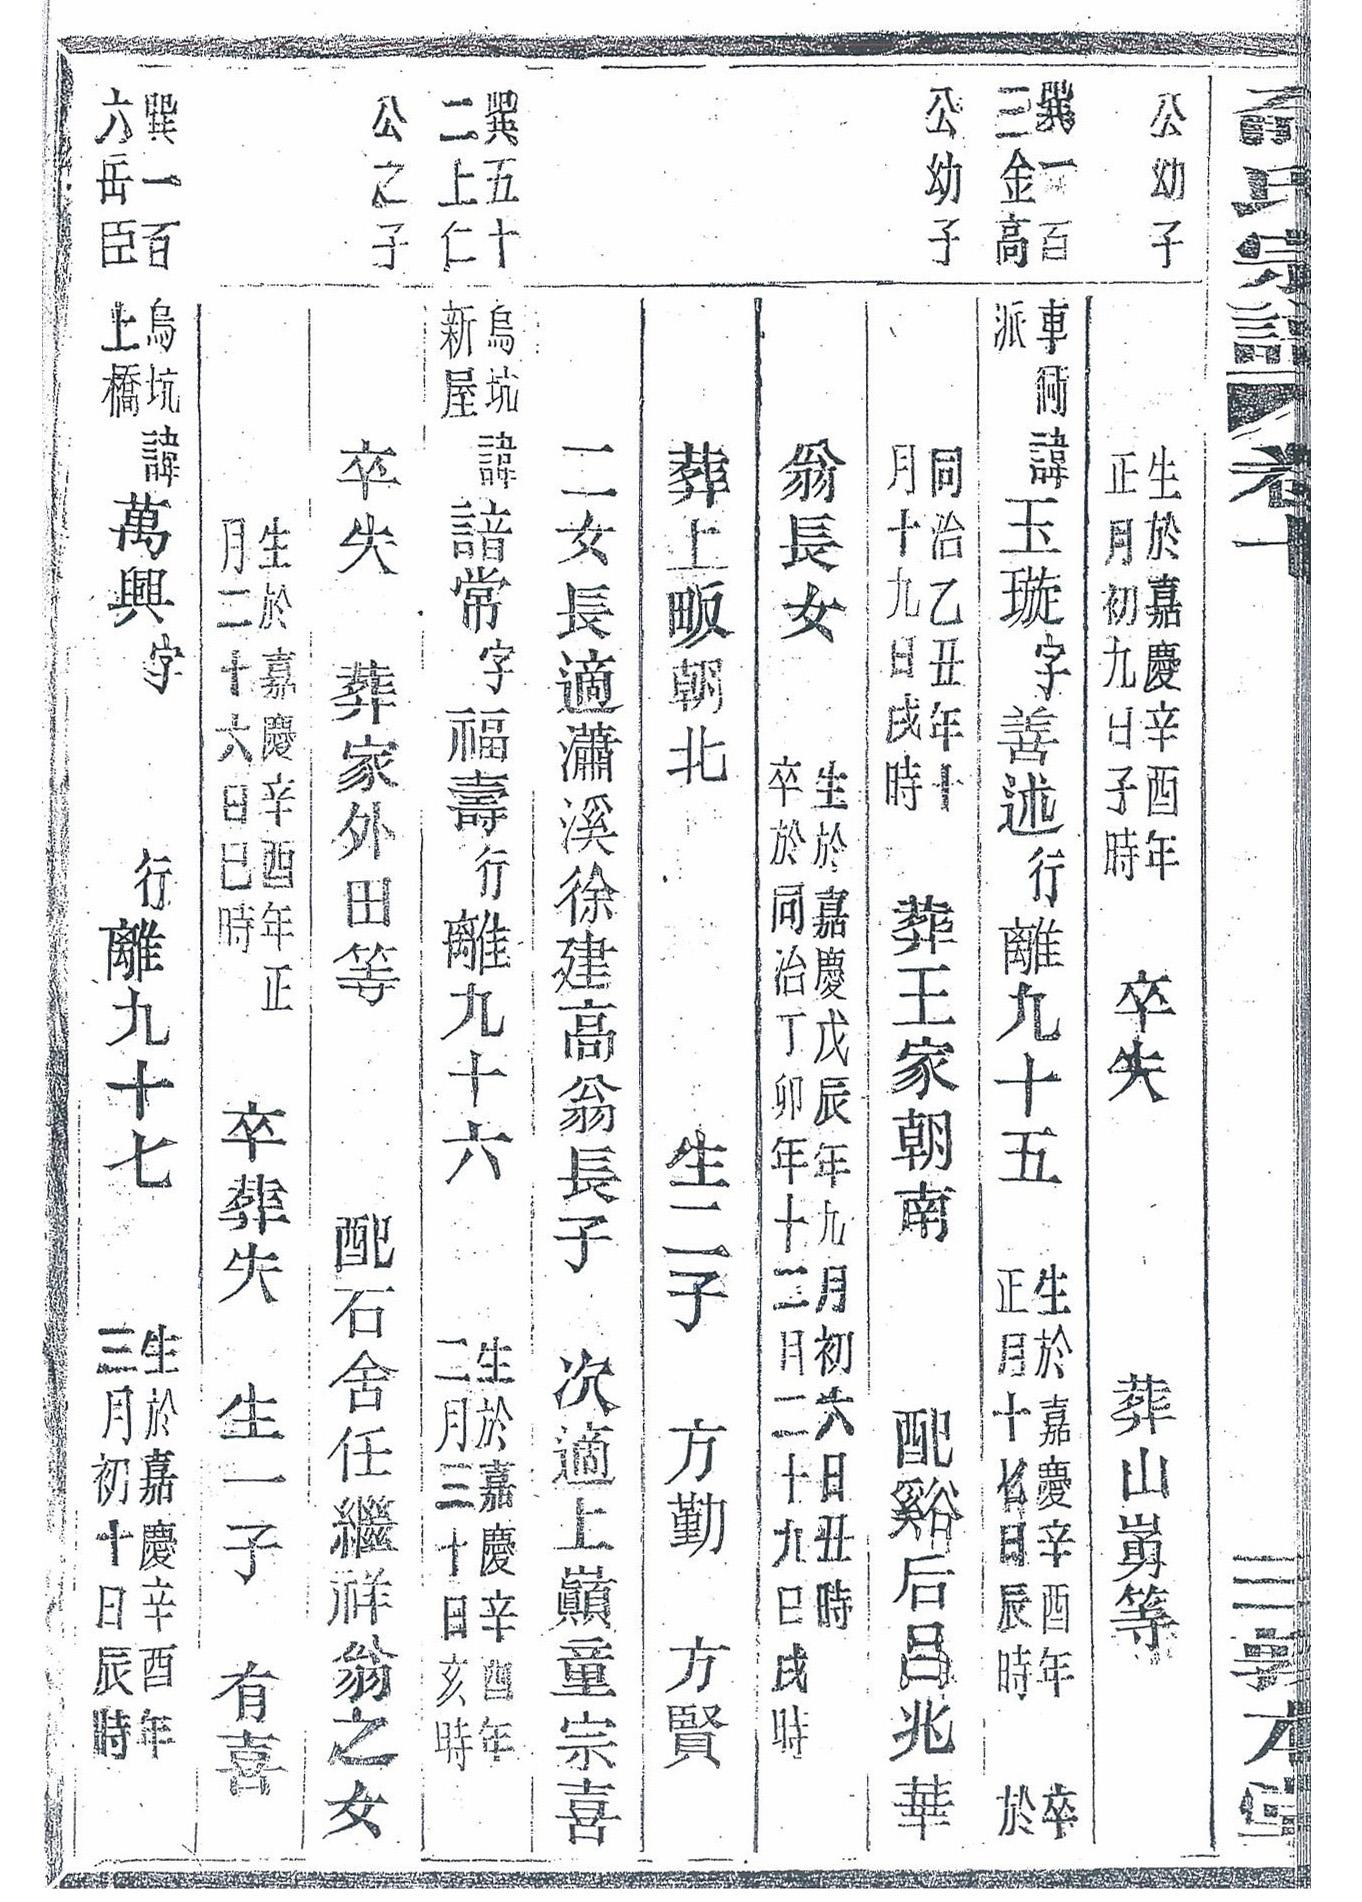 氏宗譜 卷十
公幼子
生於嘉慶辛酉年
正月初九日子時
卒失 葬山塝等
巽一百
三金高
車衕
派
諱玉璇字善述行離九十五
生於嘉慶辛酉年
正月十七日辰時
卒
於
公幼子
同治乙丑年十
月十九日戌時
葬王家朝南 配谿后呂兆華
翁長女
生於嘉慶戊辰年九月初六日丑時
卒於同治丁卯年十二月二十九日戌時
葬上畈朝北 生二子 方勤 方賢
二女長適瀟溪徐建高翁長子 次適上巔童宗喜
巽五十
二上仁
烏坑
新屋
諱諳常字福壽行離九十六
生於嘉慶辛酉年
二月三十日亥時
公之子
卒失 葬家外田等 配石舍任繼祥翁之女
生於嘉慶辛酉年正
月二十六日巳時
卒葬失 生一子 有喜
巽一百
六岳臣
烏坑
上橋
諱萬興字 行離九十七
生於嘉慶辛酉年
三月初十日辰時